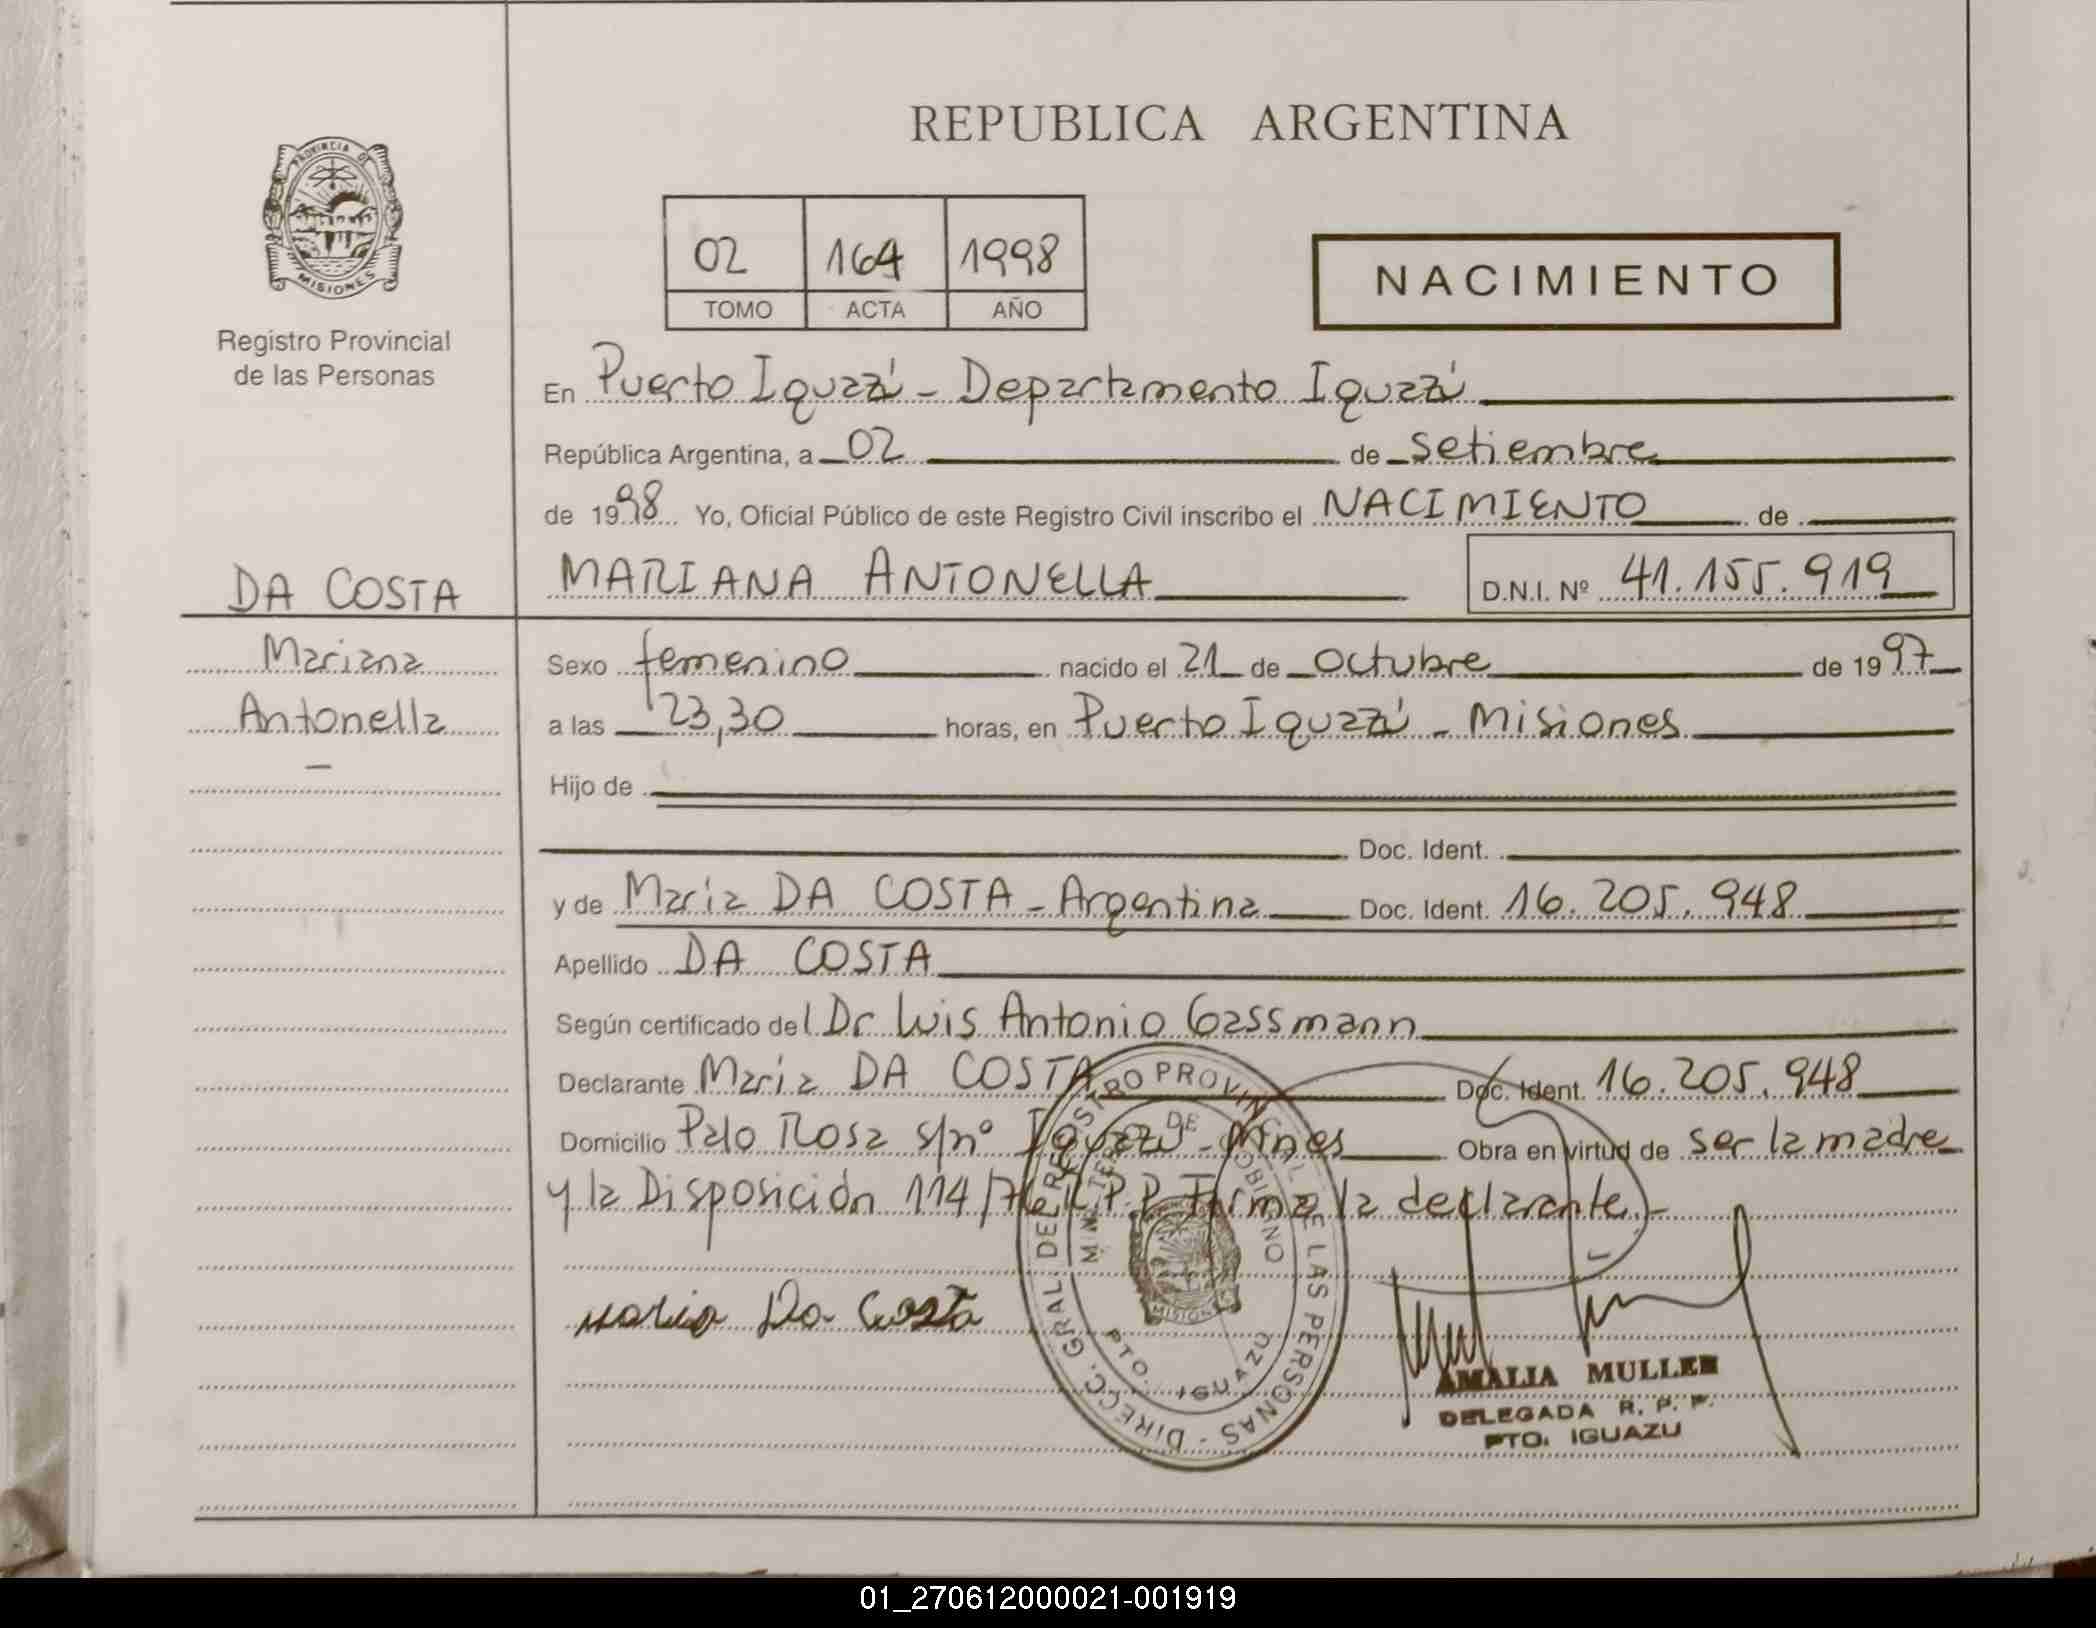 REPUBLICA ARGENTINA
PROVINCIA DE
MISIONES
Registro Provincial
de las Personas
02 164 1998
TOMO ACTA AÑO
NACIMIENTO
En Puerto Iguazú - Departamento Iguazú
República Argentina, a 02 de setiembre
de 1998 Yo, Oficial Público de este Registro Civil inscribo el NACIMIENTO de
DA COSTA
MARIANA ANTONELLA D.N.I. Nº 41.155.919
Mariana
Antonella
Sexo femenino nacido el 21 de octubre de 1997
a las 23,30 horas, en Puerto Iguazú - Misiones
Hijo de
Doc. Ident.
y de Maria DA COSTA - Argentina Doc. Ident. 16.205.948
Apellido DA COSTA
Según certificado del Dr Luis Antonio Gassmann
Declarante Maria DA COSTA Doc. Ident. 16.205.948
Domicilio Palo Rosa s/nº Iguazú - Mnes Obra en virtud de ser la madre
y la Disposición 114/76 R.P.P. Firma la declarante.-
Maria Da Costa
DIRECC. GRAL. DE REGISTRO PROVINCIAL DE LAS PERSONAS -
MINISTERIO DE GOBIERNO
MISIONES
PTO. IGUAZU
AMALIA MULLER
DELEGADA R. P. P.
PTO. IGUAZU
01_270612000021-001919